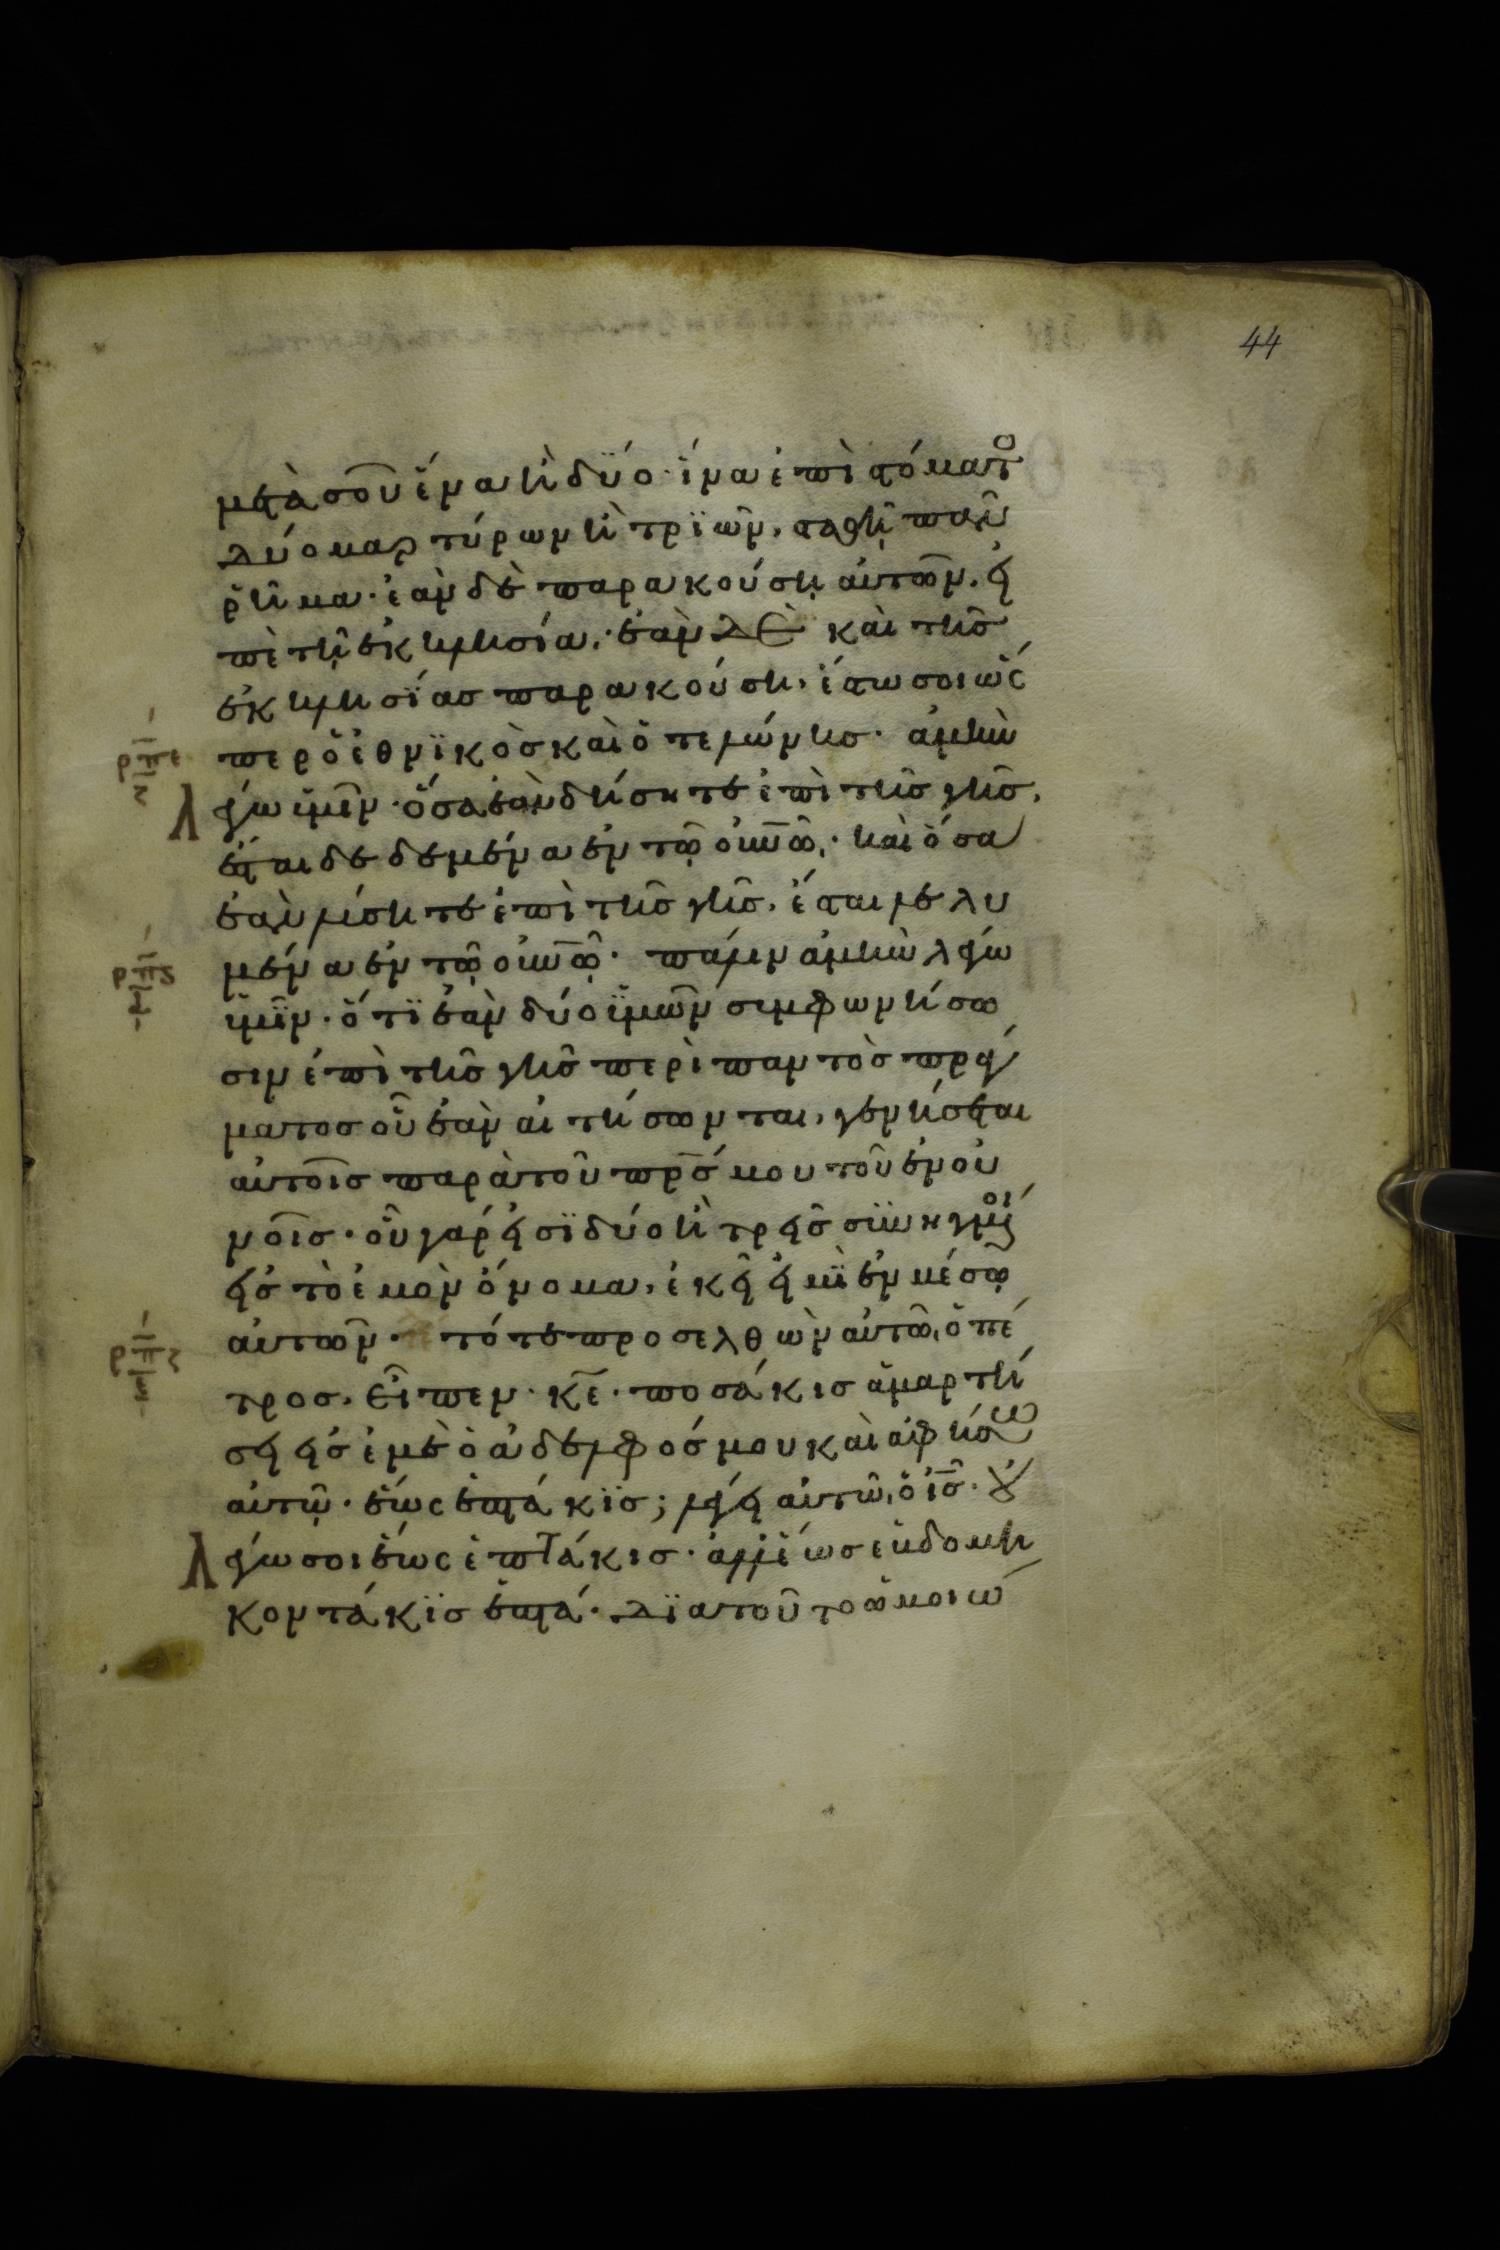 44
μετὰ σοῦ ἕνα ἢ δϋο· ἵνα ἐπὶ στόματο
δύο μαρτύρων ἢ τρϊῶν, σταθῆ πᾶν
ῥῆμα· ἐὰν δὲ παρακούση αὐτῶν, εἰ
πὲ τῆ ἐκκλησία· ἐὰν δὲ καὶ τῆσ
ἐκκλησΐασ παρακούση, ἔστω σοι ὥς
περ ὁ ἐθνϊκὸσ καὶ ὁ τελώνησ· ἀμὴν
ρπε
Λέγω ὑμῖν· ὅσα ἐὰν δήσητε ἐπὶ τῆσ γῆσ,
ἔσται δεδεμένα ἐν τῶ οὐνῶ· καὶ ὅσα
ἐὰν λύσητε ἐπὶ τῆσ γῆσ, ἔσται λελυ
μένα ἐν τῶ οὐνῶ· πάλιν ἀμὴν λέγω
ρπς
ὑμῖν· ὅτϊ ἐὰν δύο ὑμῶν συμφωνήσω
σιν ἐπὶ τῆσ γῆσ περὶ παντὸσ πράγ
ματοσ οὗ ἐὰν αἰτήσωνται, γενήσεται
αὐτοῖσ παρὰ τοῦ πρσ μου τοῦ ἐν οὐ
νοῖσ· οὗ γάρ εἰσϊ δύο ἢ τρεῖσ συνηγμένοι
εἰσ τὸ ἐμὸν ὄνομα, ἐκεῖ εἰμϊ ἐν μέσω
αὐτῶν· τότε προσελθὼν αὐτῶ, ὁ πέ
ρπζ
τροσ, εἶπεν· κε· ποσάκισ ἁμαρτή
σει εἰσ ἐμὲ ὁ ἀδελφόσ μου καὶ ἀφήσω
αὐτῶ· ἕως ἑπτάκϊσ; λέγει αὐτῶ, ὁ ισ· οὐ
Λέγω σοι ἕως ἑπτάκισ· ἀλλ' ἕωσ ἑβδομη
κοντάκϊσ ἑπτά· Δϊατοῦτο ὡμοιώ